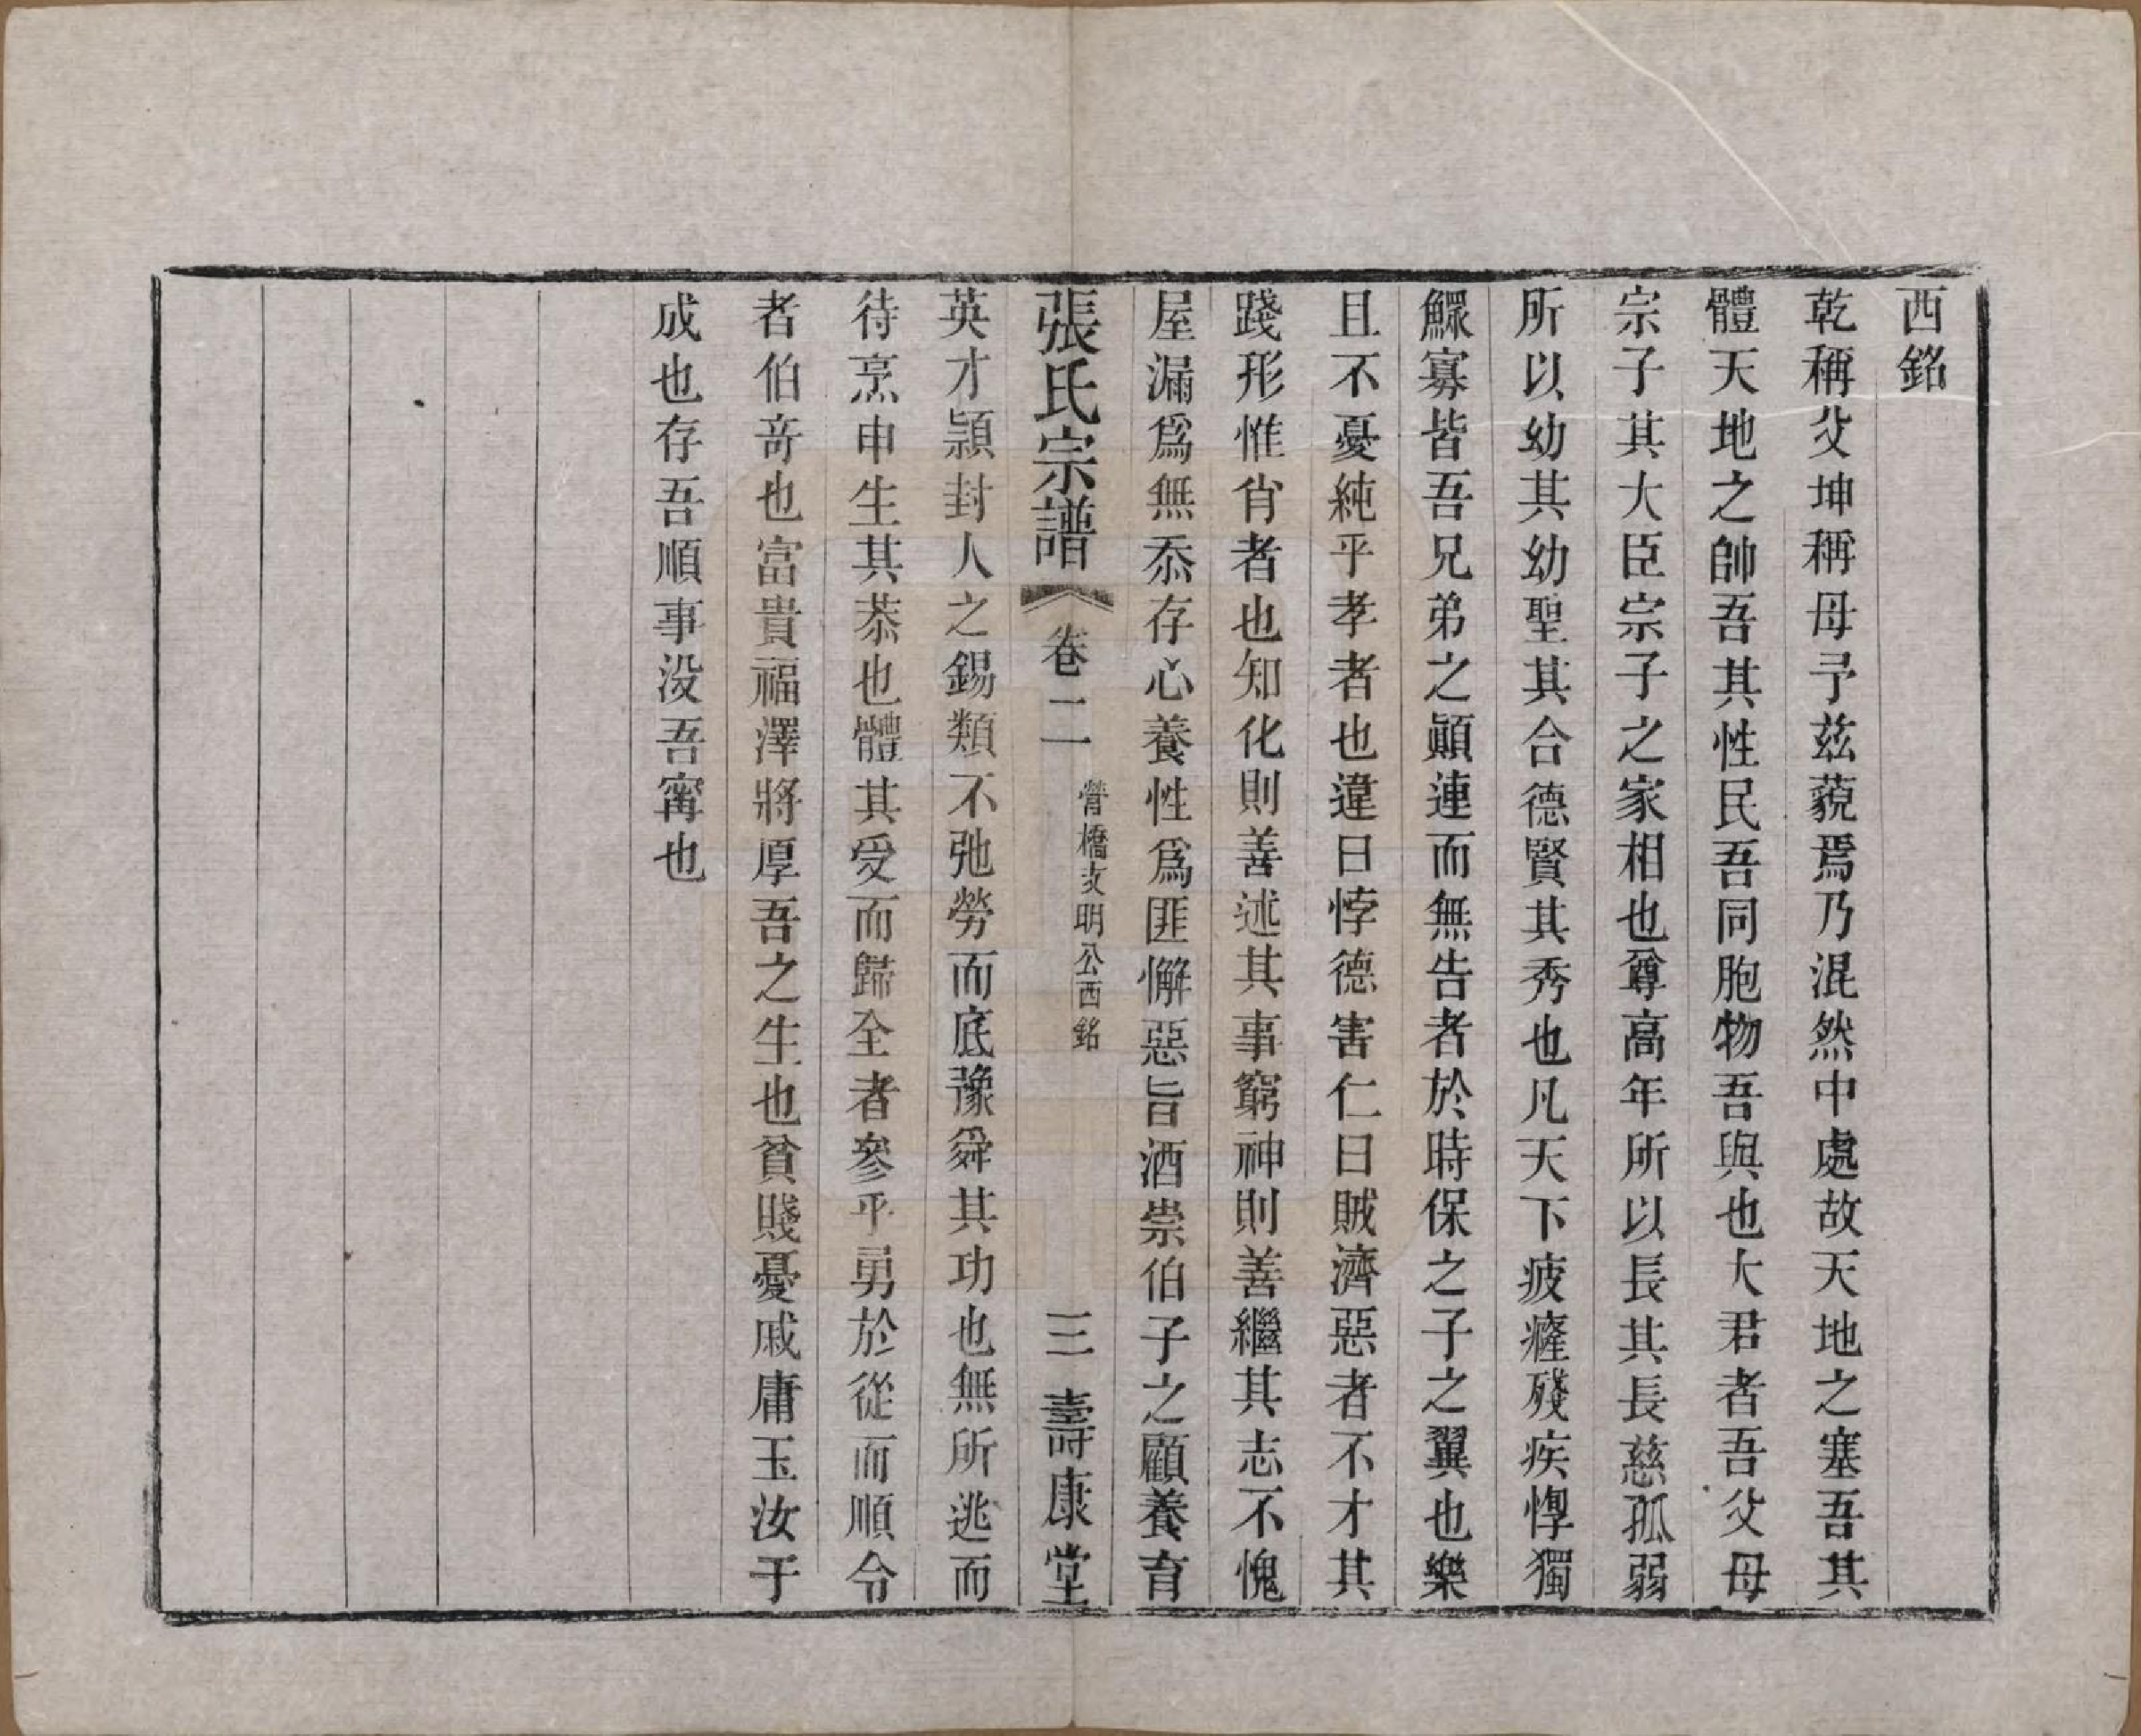 西銘
乾稱父坤稱母予茲藐焉乃混然中處故天地之塞吾其
體天地之帥吾其性民吾同胞物吾與也大君者吾父母
宗子其大臣宗子之家相也尊高年所以長其長慈孤弱
所以幼其幼聖其合德賢其秀也凡天下疲癃殘疾惸獨
鰥寡皆吾兄弟之顚連而無告者於時保之子之翼也樂
且不憂純乎孝者也違曰悖德害仁曰賊濟惡者不才其
踐形惟肖者也知化則善述其事窮神則善繼其志不愧
屋漏爲無忝存心養性爲匪懈惡旨酒崇伯子之顧養育
張氏宗譜 卷二 營橋文明公西銘 三 壽康堂
英才頴封人之錫類不弛勞而底豫舜其功也無所逃而
待烹申生其恭也體其受而歸全者參乎勇於從而順令
者伯奇也富貴福澤將厚吾之生也貧賤憂戚庸玉汝于
成也存吾順事没吾甯也